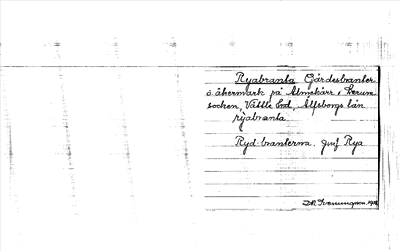 Ryabranta Gärdesbranter
o. åkermark på Almekärr i Lerum
socken, Vättle hd, Älfsborgs län
ryabranta
Ryd branterna. jmf Rya
D.N. Svenungsson 1918